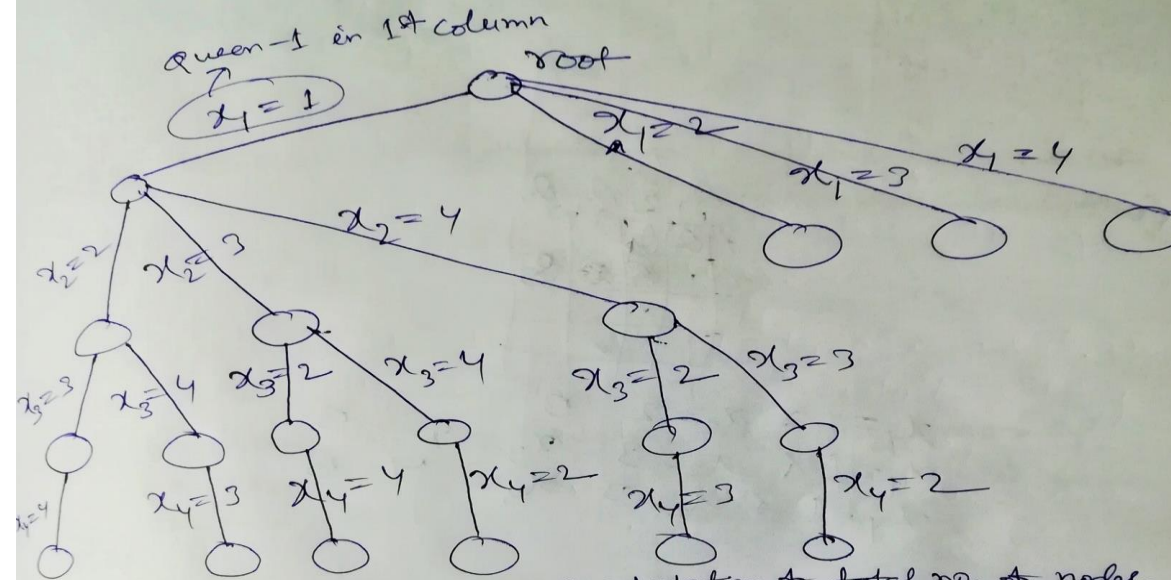 Queen-1 in 1st column
root
x1 = 1
x1 = 2
x1 = 3
x1 = 4
x2 = 2
x2 = 3
x2 = 4
x3 = 3
x3 = 4
x3 = 2
x3 = 4
x3 = 2
x3 = 3
x4 = 4
x4 = 3
x4 = 4
x4 = 2
x4 = 3
x4 = 2
total no of nodes